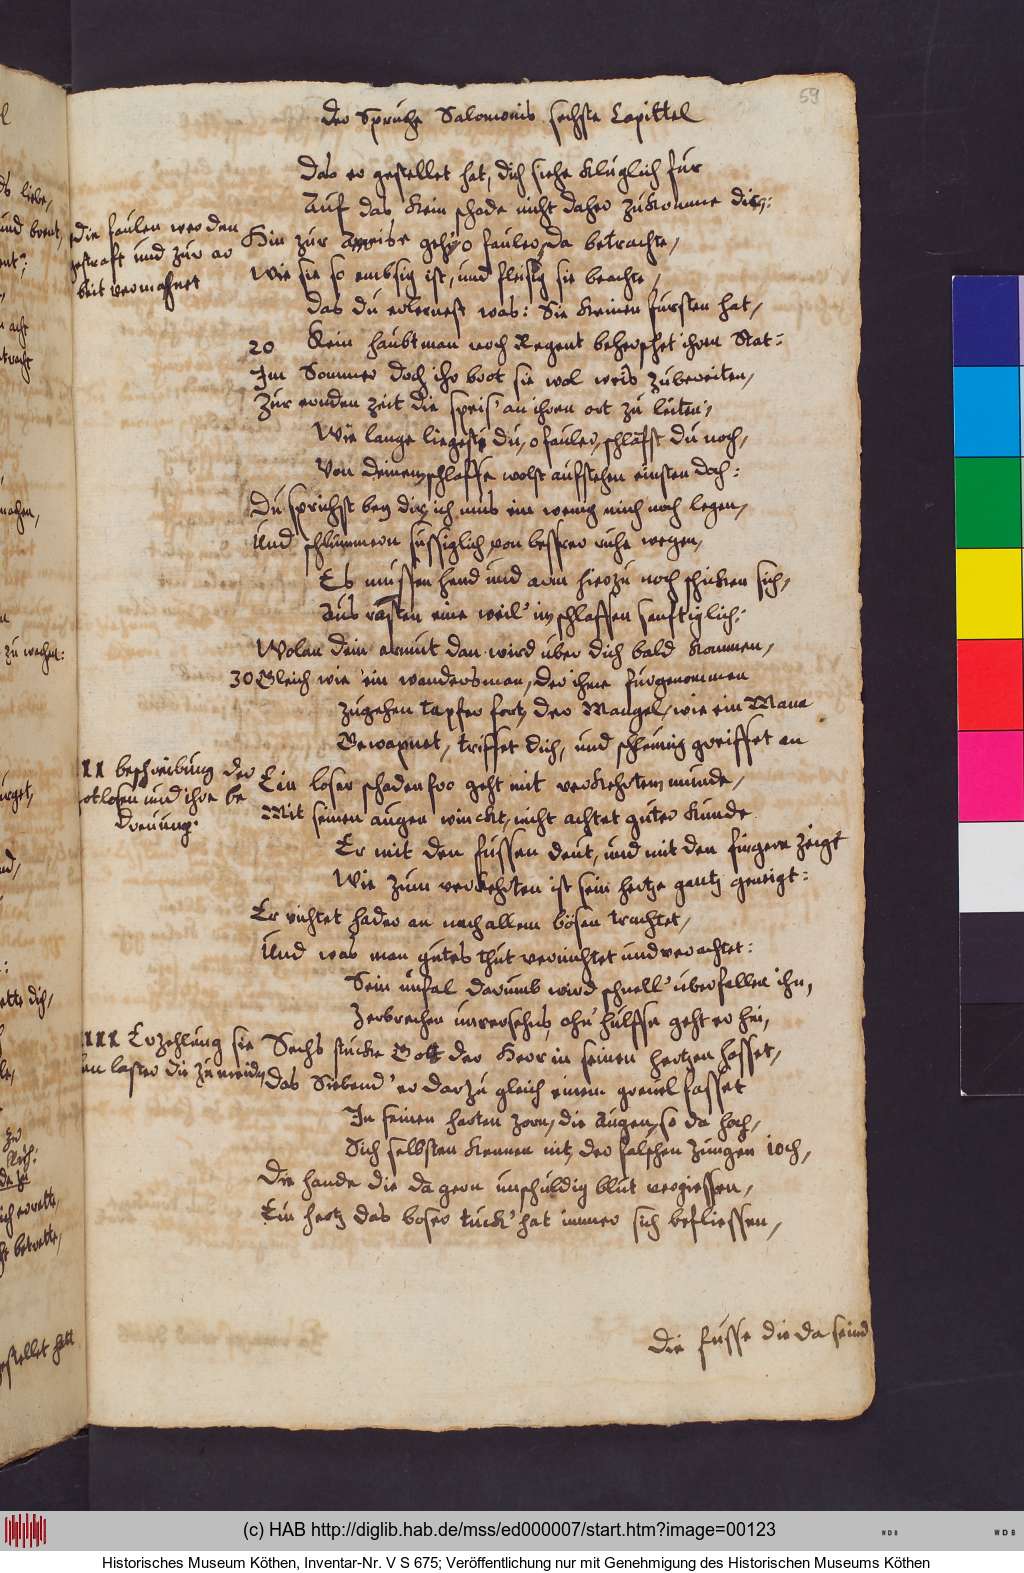 59
Der Spruche Salomonis sechste Capittel
Das er gestellet hat, dich siehe kluglich fur
Auf das kein schade nicht daher zukomme dir:
die faulen werden
gestraft und zur ar
beit vermahnet
Hin zur Ameise geh, o fauler, da betrachte,
Wie sie so embsig ist, und fleisig sie beachte,
das du erlernest was: Sie keinen fursten hat,
20 Kein haubtman noch Regent behershet ihren Stat:
Im Sommer doch ihr brot sie wol weis zubereiten,
Zur ernden zeit die speis' an ihren ort zu leiten,
Wie lange liegest du, o fauler, schläfst du noch,
Von deinem schlaffe wolst aufstehen einsten doch:
Du sprichst bey dir, ich mus ein wenig mich noch legen,
Und schlummern sussiglich von bessrer ruhe wegen,
Es mussen hend und arm hierzu noch schicken sich,
Aus rasten eine weil' im schlaffen senftiglich:
Wolan dein armut dan wird uber dich bald kommen,
30 Gleich wie ein wandersman, der ihme furgenommen
Zugehen tapfer fort, der Mangel, wie ein Mann
Gewapnet, triffet dich, und schleunig greiffet an
II beschreibung der
otlosen und ihre be
dreuung:
Ein loser schadenfro geht mit verkehrtem munde,
Mit seinen augen winckt, nicht achtet guter kunde
Er mit den fussen deut, und mit den fingern zeigt
Wie zum verkehrten ist sein hertze gantz geneigt:
Er richtet hader an nach allem bösen trachtet,
Und was man gutes thut vernichtet und verachtet:
Sein unfal darumb wird schnell' uberfallen ihn,
Zerbrechen unversehns, ohn' hulffe geht er hin,
III Erzehlung sie
en laster die zu meiden
Sechs stucke Gott der Herr in seinem hertzen hasset,
das Siebend' er darzu gleich einem greuel fasset
In seinen harten zorn, die Augen, so da hoch,
Sich selbsten kennen nit, der falschen zungen ioch,
Die hande die da gern unschuldig blut vergiessen,
Ein hertz das boser tuck' hat immer sich beflissen,
Die fusse die da seind
(c) HAB http://diglib.hab.de/mss/ed000007/start.htm?image=00123
WDB
WDB
Historisches Museum Köthen, Inventar-Nr. V S 675; Veröffentlichung nur mit Genehmigung des Historischen Museums Köthen